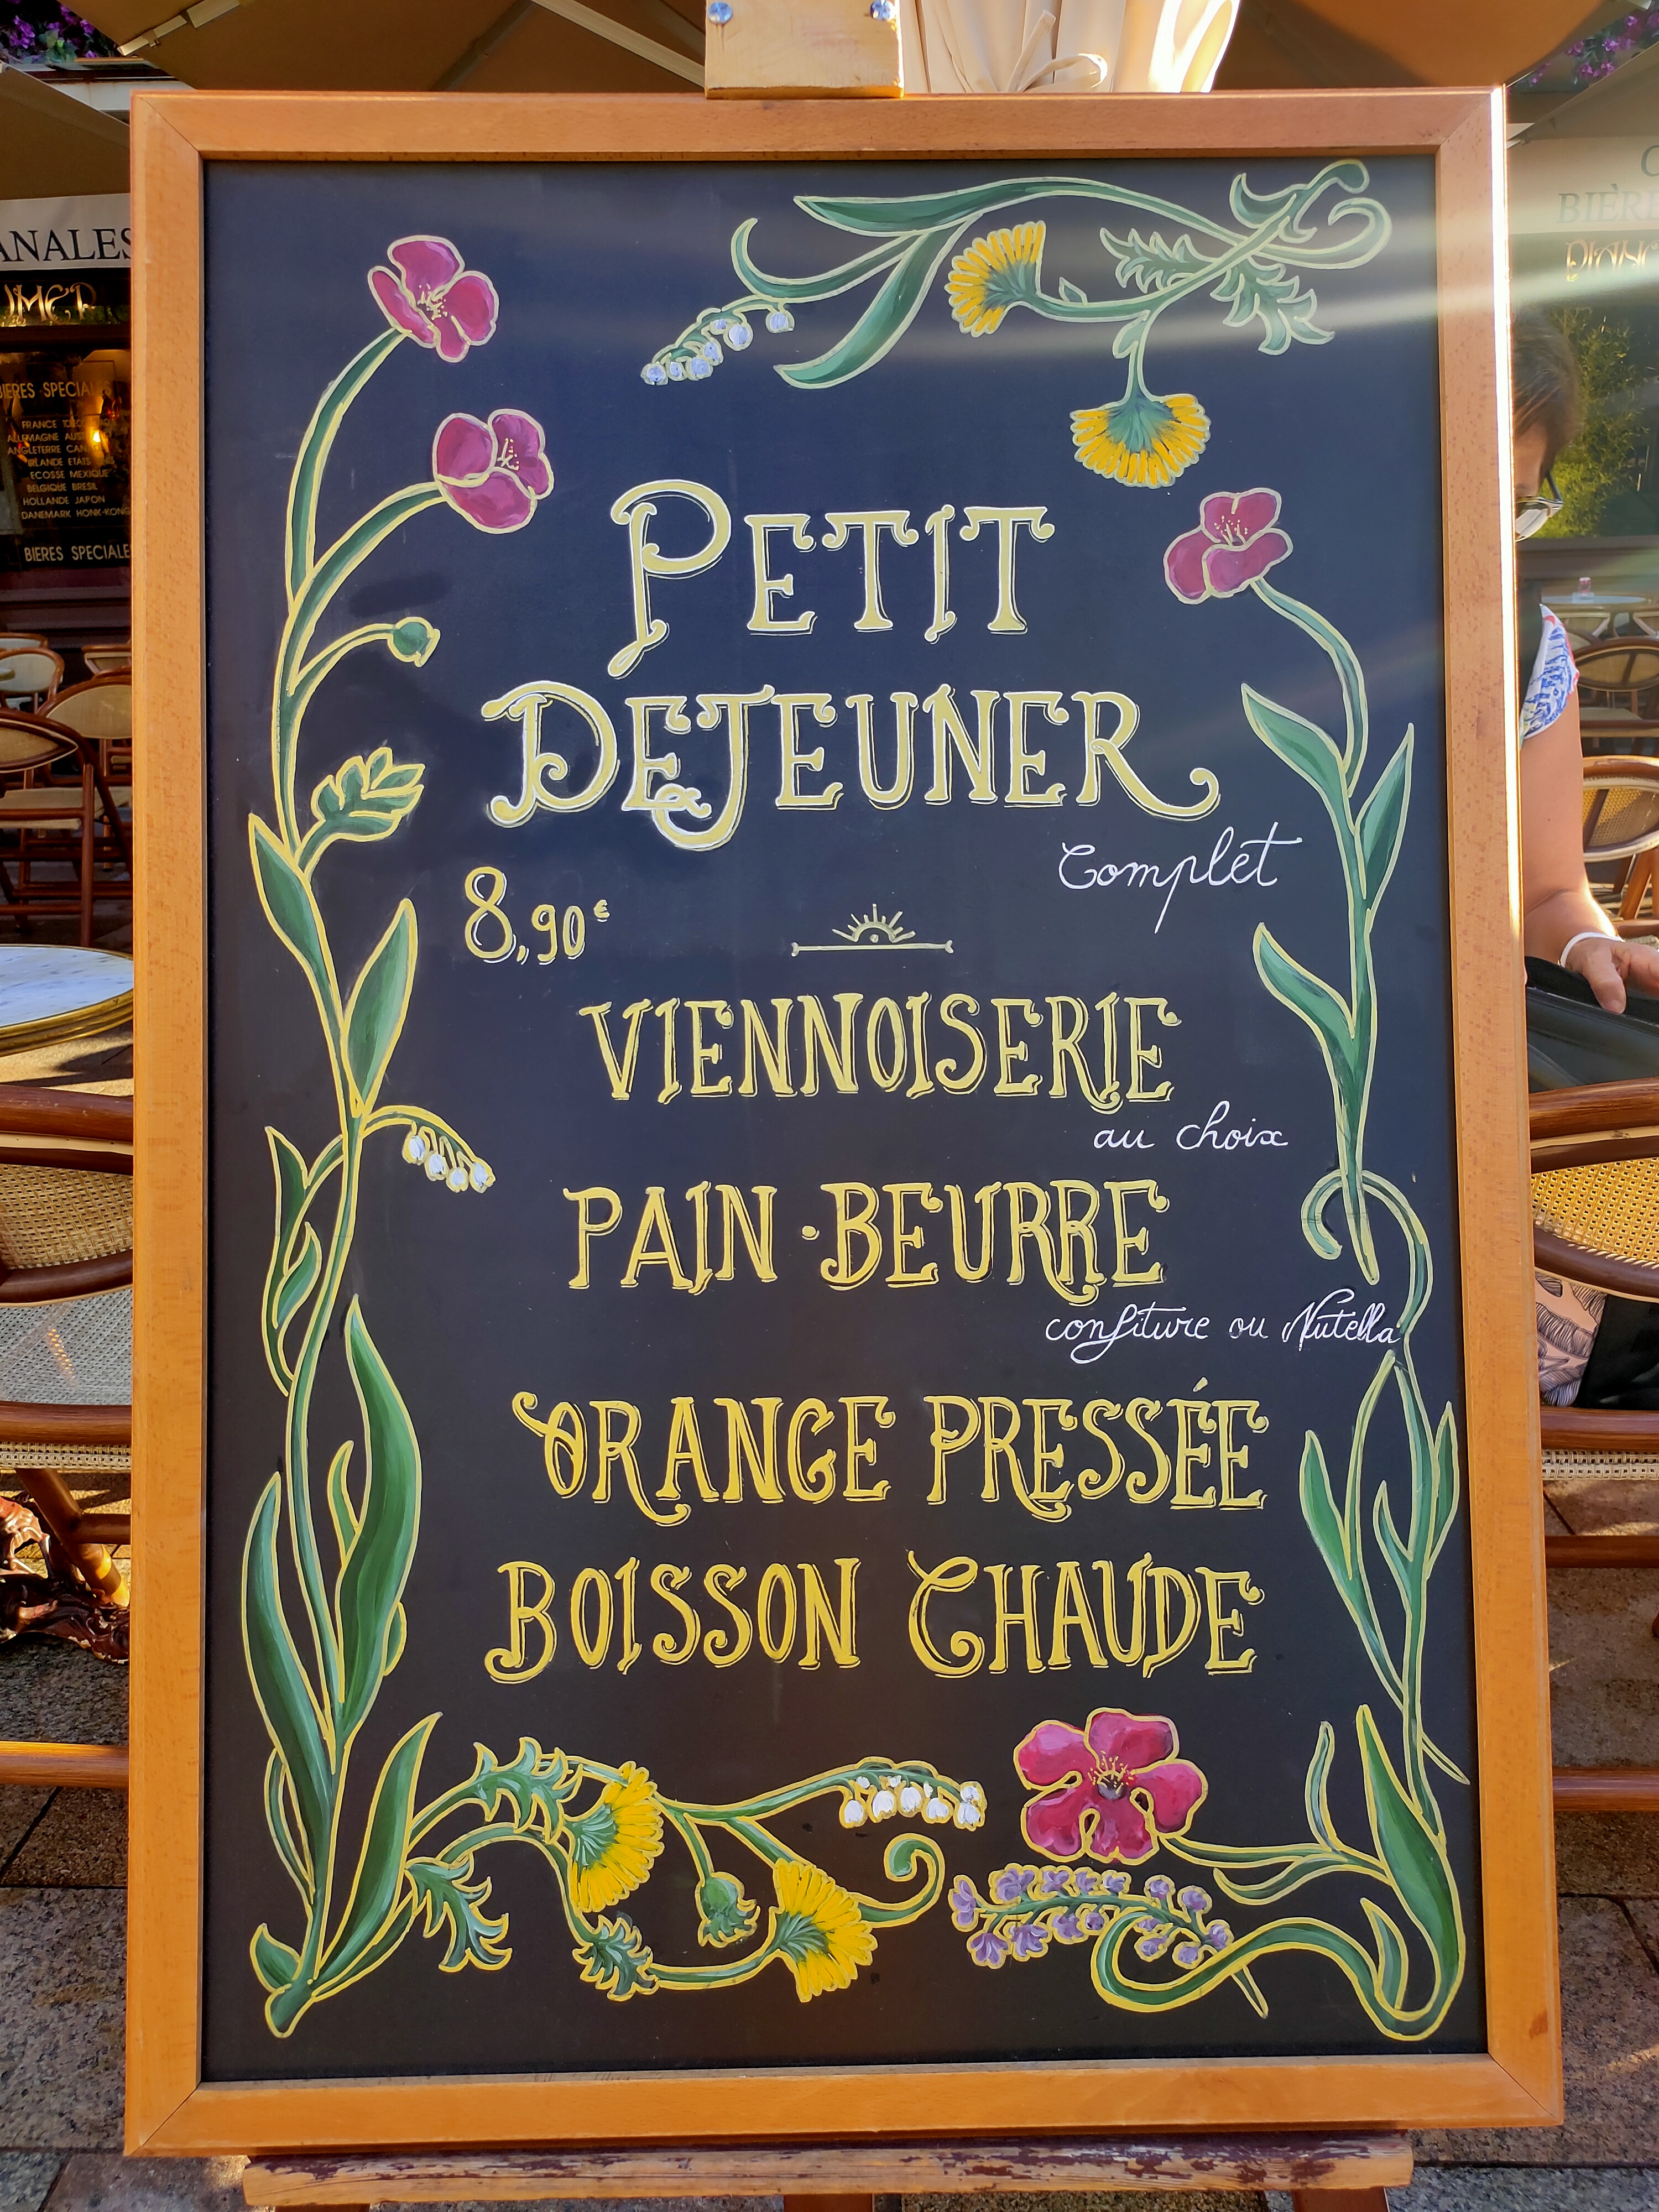 PETIT
DEJEUNER
Complet
8,90€
VIENNOISERIE
au choix
PAIN · BEURRE
confiture ou Nutella
ORANGE PRESSÉE
BOISSON CHAUDE
ANALES
BIERES SPECIALES
FRANCE
ALLEMAGNE
ANGLETERRE
IRLANDE ETATS
ECOSSE MEXIQUE
BELGIQUE BRESIL
HOLLANDE JAPON
DANEMARK HONK-KONG
BIERES SPECIALE
BIÈRE